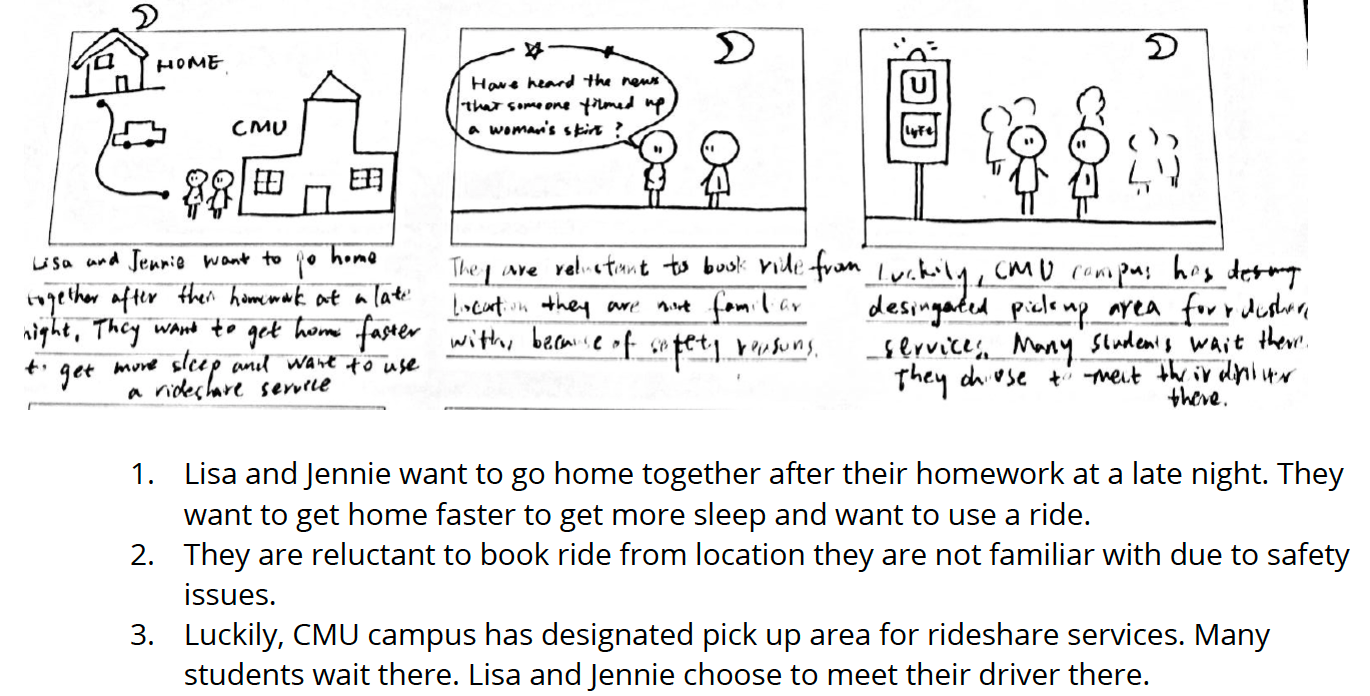 HOME
CMU
Lisa and Jennie want to go home
together after their homework at a late
night. They want to get home faster
to get more sleep and want to use
a rideshare service
Have heard the news
that someone filmed up
a woman's skirt ?
They are reluctant to book ride from
location they are not familiar
with, because of safety reasons.
U
Lyft
Luckily, CMU campus has
desingated pickup area for rideshare
services. Many students wait there.
They choose to meet their driver
there.
1. Lisa and Jennie want to go home together after their homework at a late night. They
want to get home faster to get more sleep and want to use a ride.
2. They are reluctant to book ride from location they are not familiar with due to safety
issues.
3. Luckily, CMU campus has designated pick up area for rideshare services. Many
students wait there. Lisa and Jennie choose to meet their driver there.